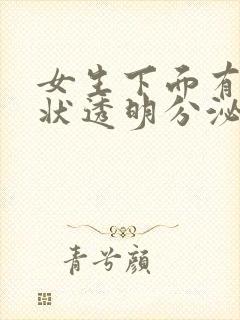 女生下面有
状透明分泌
青兮颜